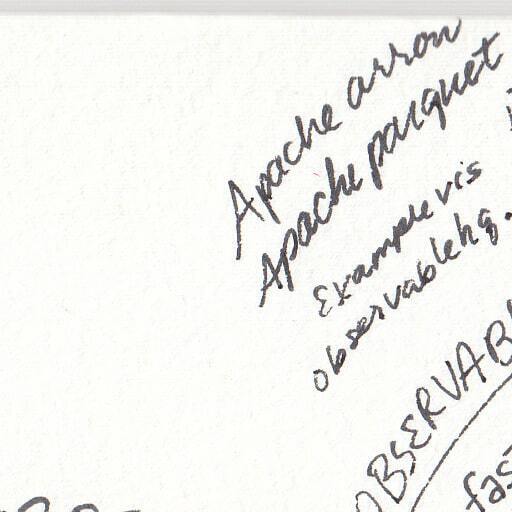 Apache arrow
Apache parquet
Example vis
observablehq.
OBSERVAB
fas